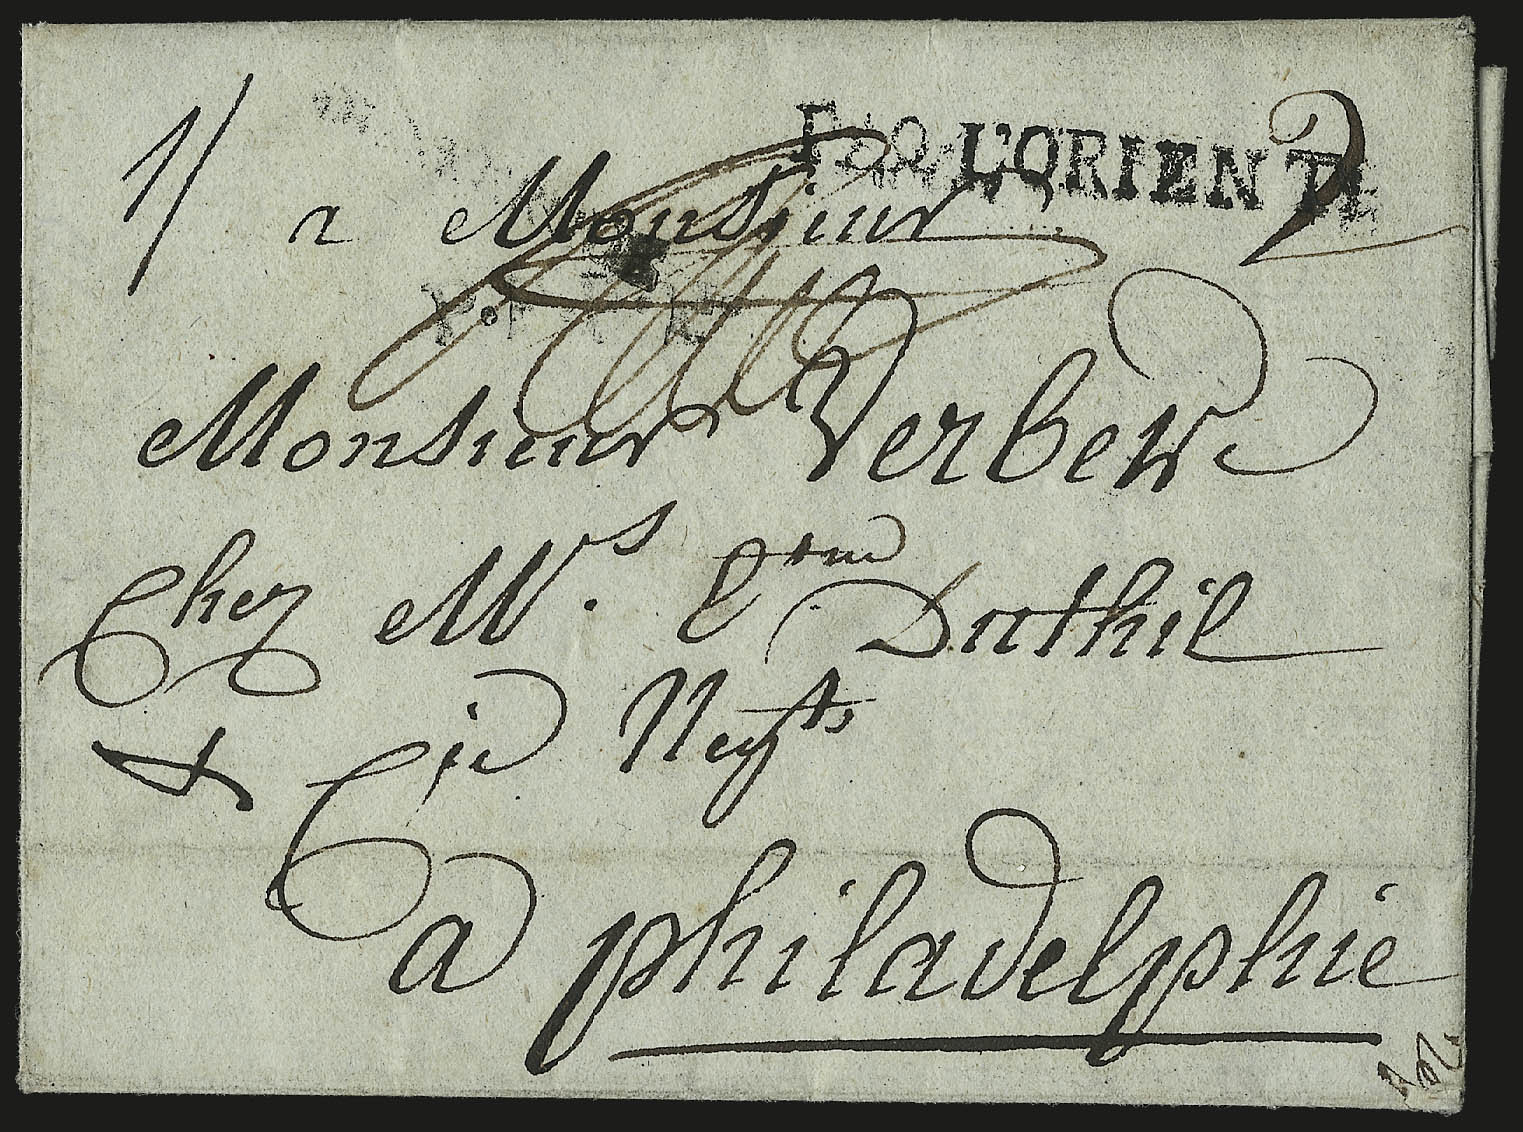 1/
L'ORIENT
2
a Monsieur
Monsieur Verbew
Chez Mrs. Etne Duthil
& Cie Negts
a philadelphie